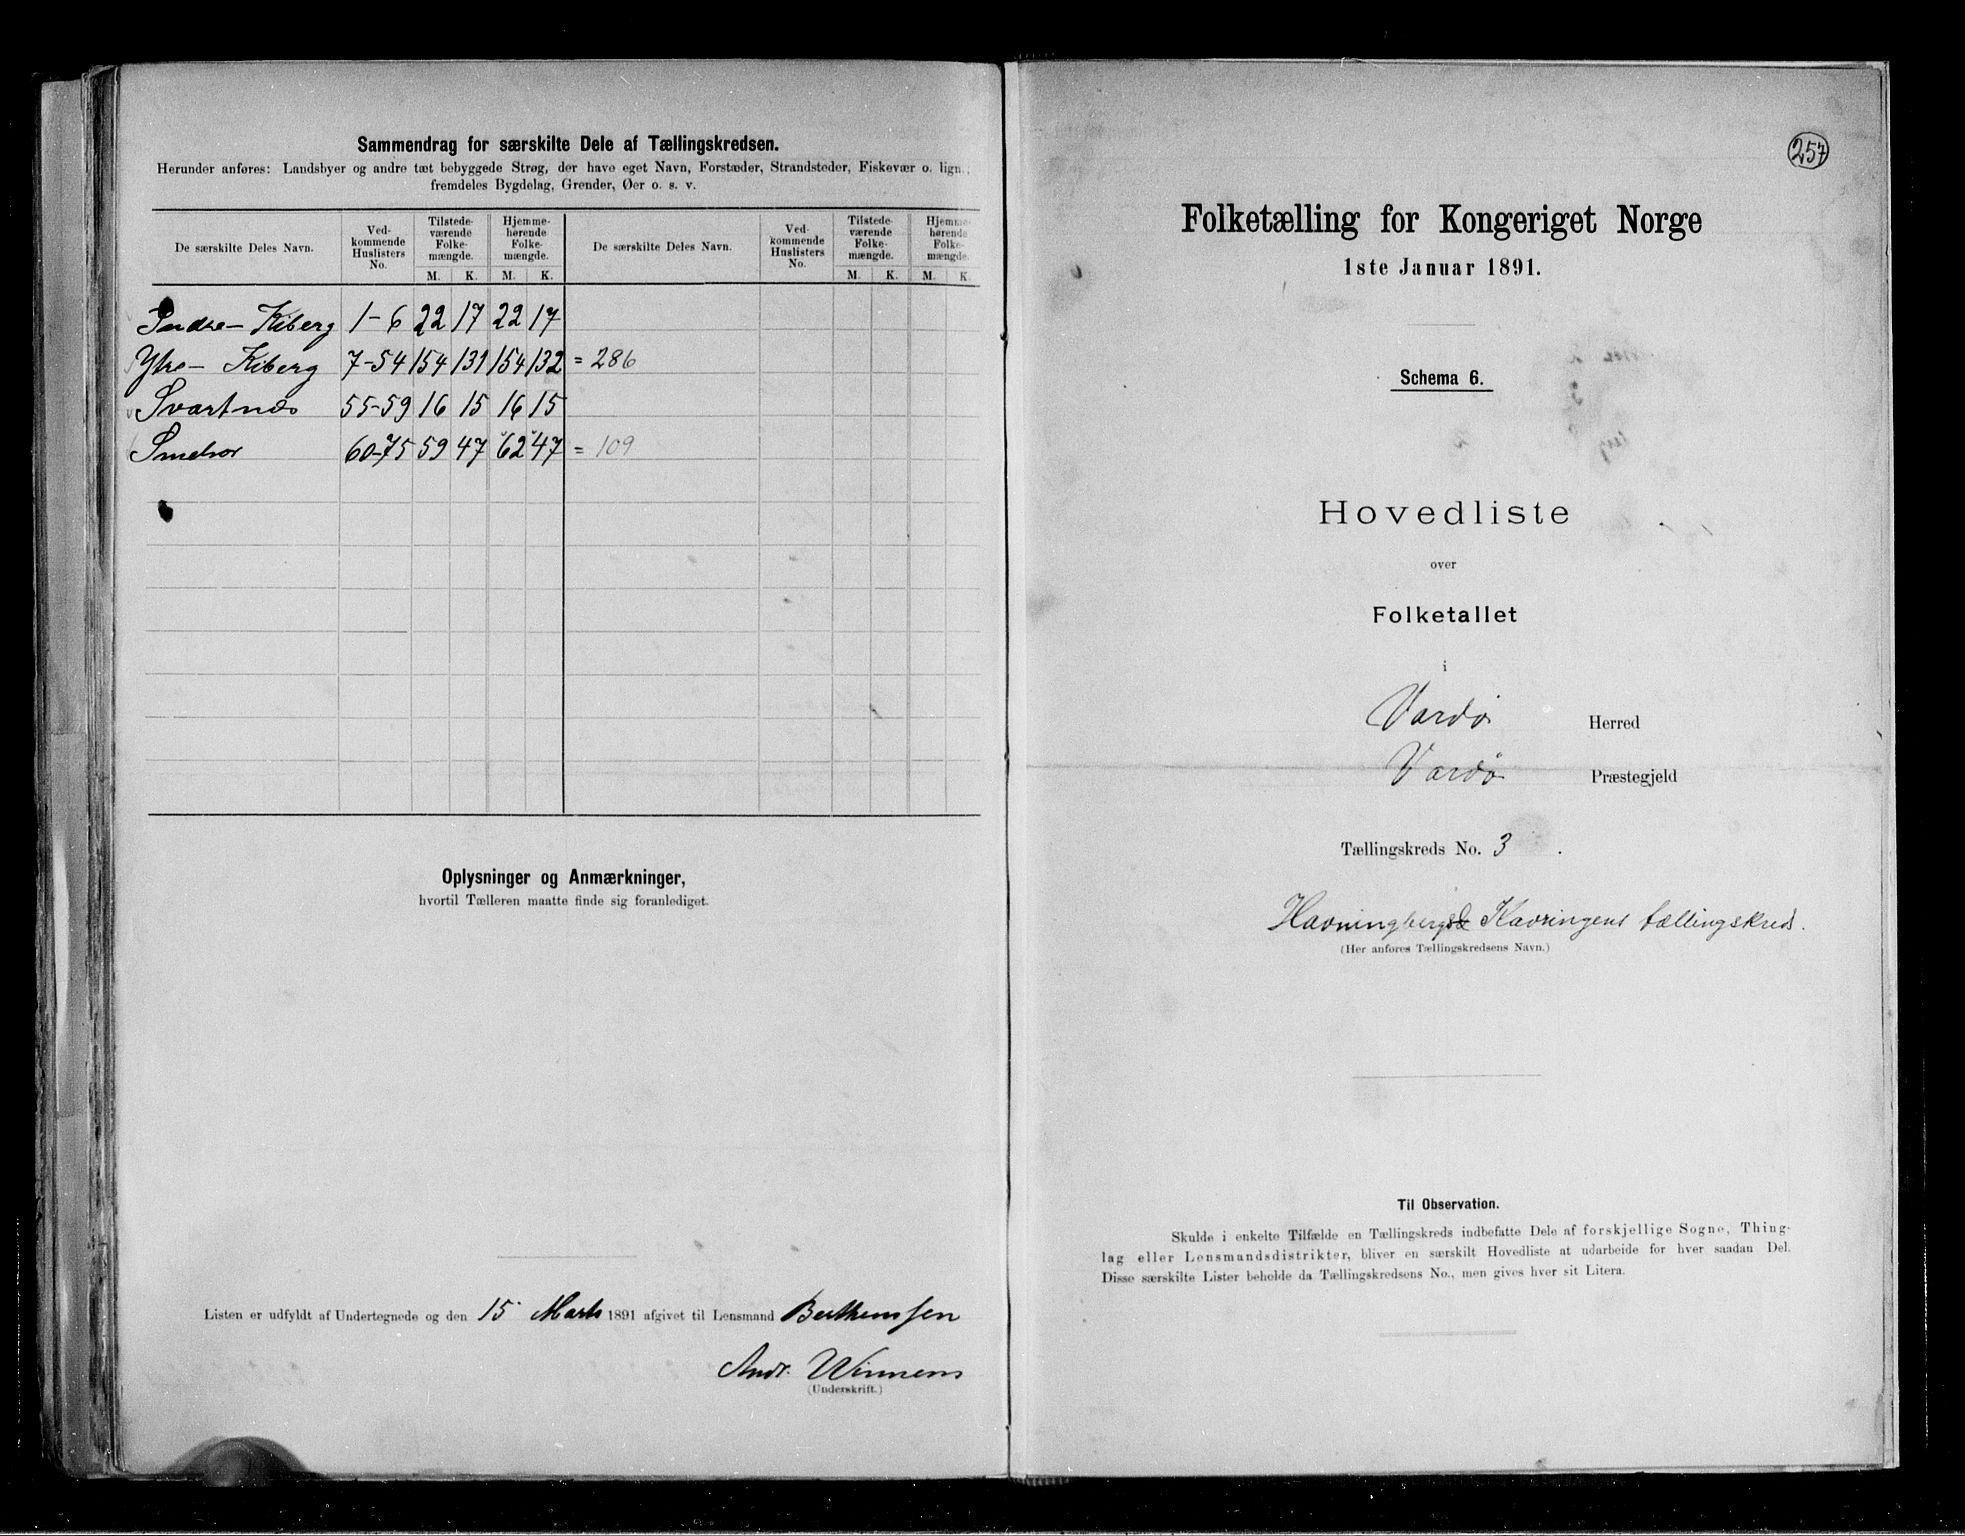 Sammendrag for særskilte Dele af Tællingskredsen.
Herunder anføres: Landsbyer og andre tæt bebyggede Strøg, der have eget Navn, Forstæder, Strandsteder, Fiskevær o. lign.,
fremdeles Bygdelag, Grender, Øer o. s. v.
De særskilte Deles Navn. Ved-kommende Huslisters No. Tilstede-værende Folke-mængde. M. K. Hjemme-hørende Folke-mængde. M. K. De særskilte Deles Navn. Ved-kommende Huslisters No. Tilstede-værende Folke-mængde. M. K. Hjemme-hørende Folke-mængde. M. K.
Indre- Kiberg 1-6 22 17 22 17
Ytre- Kiberg 7-54 154 131 154 132 = 286
Svartnæs 55-59 16 15 16 15
60-75 59 47 62 47 = 109
Oplysninger og Anmærkninger,
hvortil Tælleren maatte finde sig foranlediget.
Listen er udfyldt af Undertegnede og den 15 Marts 1891 afgivet til Lensmand
Andr.
(Underskrift.)
257
Folketælling for Kongeriget Norge
1ste Januar 1891.
Schema 6.
Hovedliste
over
Folketallet
i
Vardø Herred
Vardø Præstegjeld
Tællingskreds No. 3.
Havningberg Kavringens tællingskreds.
(Her anføres Tællingskredsens Navn.)
Til Observation.
Skulde i enkelte Tilfælde en Tællingskreds indbefatte Dele af forskjellige Sogne, Thing-
lag eller Lensmandsdistrikter, bliver en særskilt Hovedliste at udarbeide for hver saadan Del.
Disse særskilte Lister beholde da Tællingskredsens No., men gives hver sit Litera.